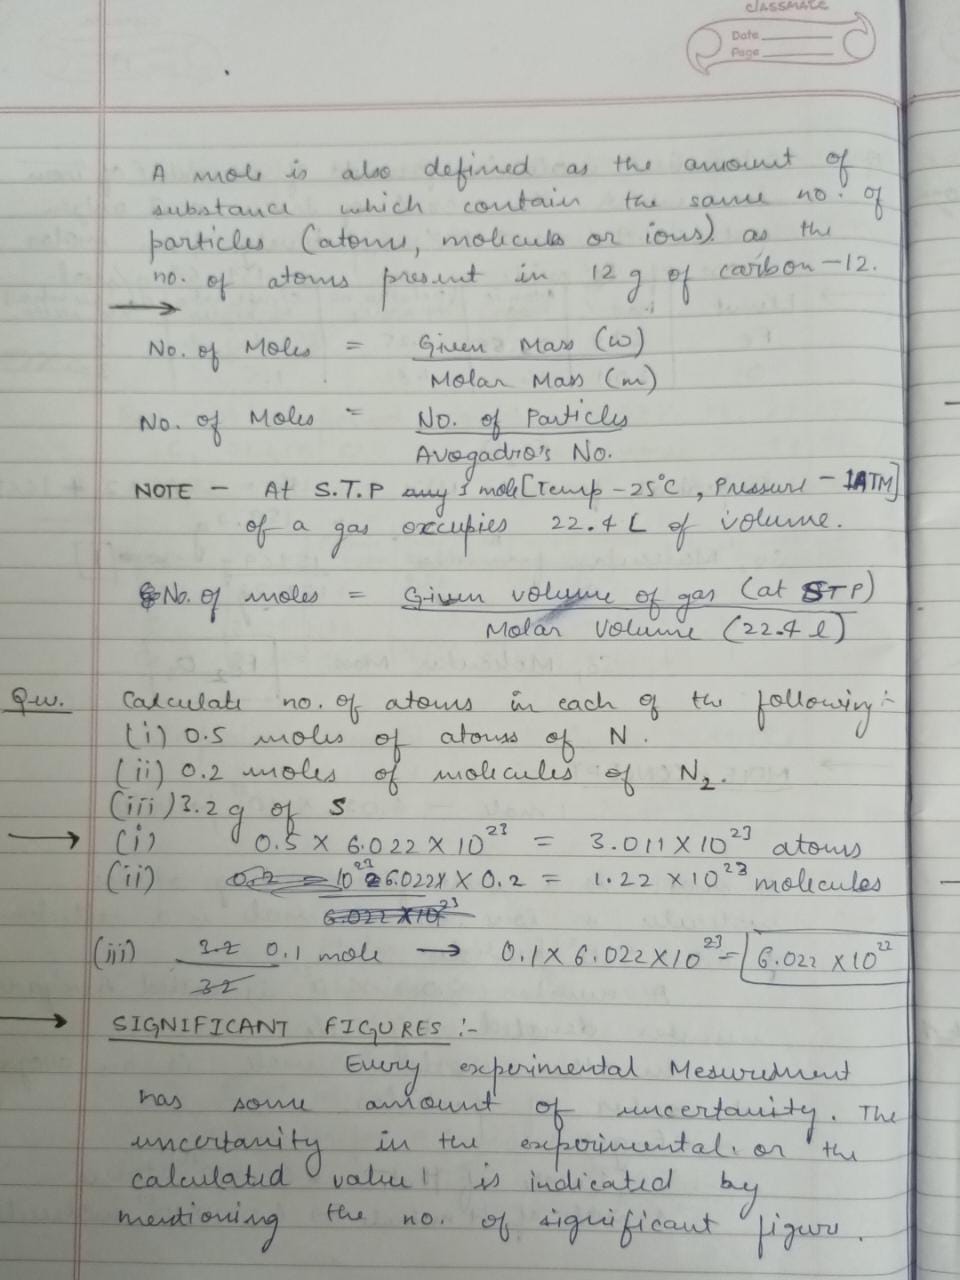 classmate
Date
Page
A mole is also defined as the amount of
substance which contain the same no. of
particles (atoms, molecules or ions) as the
no. of atoms present in 12 g of carbon-12.
No. of Moles = Given Mass (w)
Molar Mass (m)
No. of Moles = No. of Particles
Avogadro's No.
NOTE - At S.T.P any 1 mole [Temp - 25°C, Pressure - 1ATM]
of a gas occupies 22.4 L of volume.
No. of moles = Given volume of gas (at STP)
Molar Volume (22.4 l)
Qw. Calculate no. of atoms in each of the following:-
(i) 0.5 moles of atoms of N.
(ii) 0.2 moles of molecules of N₂.
(iii) 3.2 g of S
→ (i) 0.5 × 6.022 × 10²³ = 3.011 × 10²³ atoms
(ii) 10²³ 6.022 × 0.2 = 1.22 × 10²³ molecules
6.022 × 10²³
(iii) 3.2 0.1 mole → 0.1 × 6.022 × 10²³ = 6.022 × 10²²
32
→ SIGNIFICANT FIGURES :-
Every experimental Mesurement
has some amount of uncertanity. The
uncertanity in the experimental or the
calculated value is indicated by
mentioning the no. of significant figure.